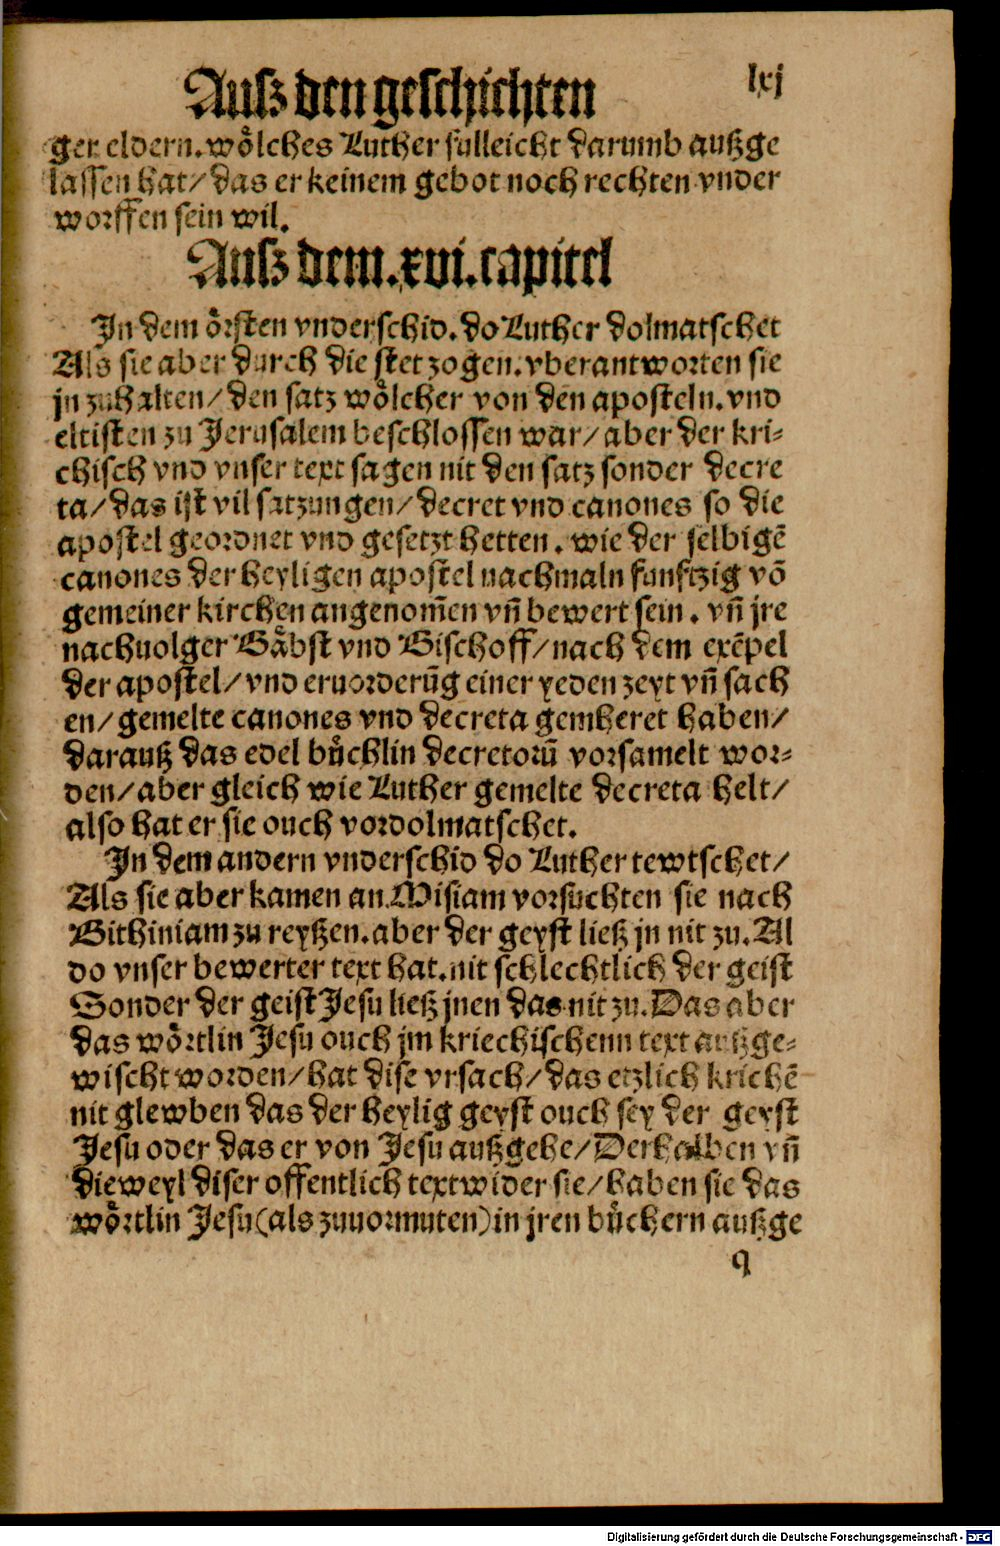 Auſz den geſchichten
lxj
ger eldern. woͤlches Luther fulleicht darumb auſzge
laſſen hat/ das er keinem gebot noch rechten vnder
worffen ſein wil.
Auſz dem .xvi. capitel
In dem oͤrſten vnderſchid. do Luther dolmatſchet
Als ſie aber durch die ſtet zogen. vberantworten ſie
jn zuhalten/ den ſatz woͤlcher von den apoſteln. vnd
eltiſten zu Jeruſalem beſchloſſen war/ aber der kri⸗
chiſch vnd vnſer text ſagen nit den ſatz ſonder decre
ta/ das iſt vil ſatzungen/ decret vnd canones ſo die
apoſtel geordnet vnd geſetzt hetten. wie der ſelbigẽ
canones der heyligen apoſtel nachmaln funftzig võ
gemeiner kirchen angenom̃en vñ bewert ſein. vñ jre
nachuolger Baͤbſt vnd Biſchoff/ nach dem exẽpel
der apoſtel/ vnd eruorderũg einer yeden zeyt vñ ſach
en/ gemelte canones vnd decreta gemheret haben/
darauſz das edel buͤchlin decretorũ vorſamelt wor⸗
den/ aber gleich wie Luther gemelte decreta helt/
alſo hat er ſie ouch vordolmatſchet.
In dem andern vnderſchid do Luther tewtſchet/
Als ſie aber kamen an Miſiam vorſuchten ſie nach
Bithiniam zu reyſzen. aber der geyſt lieſz jn nit zu. Al
do vnſer bewerter text hat. nit ſchlechtlich der geiſt
Sonder der geiſt Jeſu lieſz jnen das nit zu. Das aber
das woͤrtlin Jeſu ouch jm kriechiſchenn text auſzge⸗
wiſcht worden/ hat diſe vrſach/ das etzlich krichẽ
nit glewben das der heylig geyſt ouch ſey der geyſt
Jeſu oder das er von Jeſu auſzgehe/ Derhalben vñ
dieweyl diſer offentlich text wider ſie/ haben ſie das
woͤrtlin Jeſu (als zuuormuten) in jren buͤchern auſzge
q
Digitalisierung gefördert durch die Deutsche Forschungsgemeinschaft - DFG